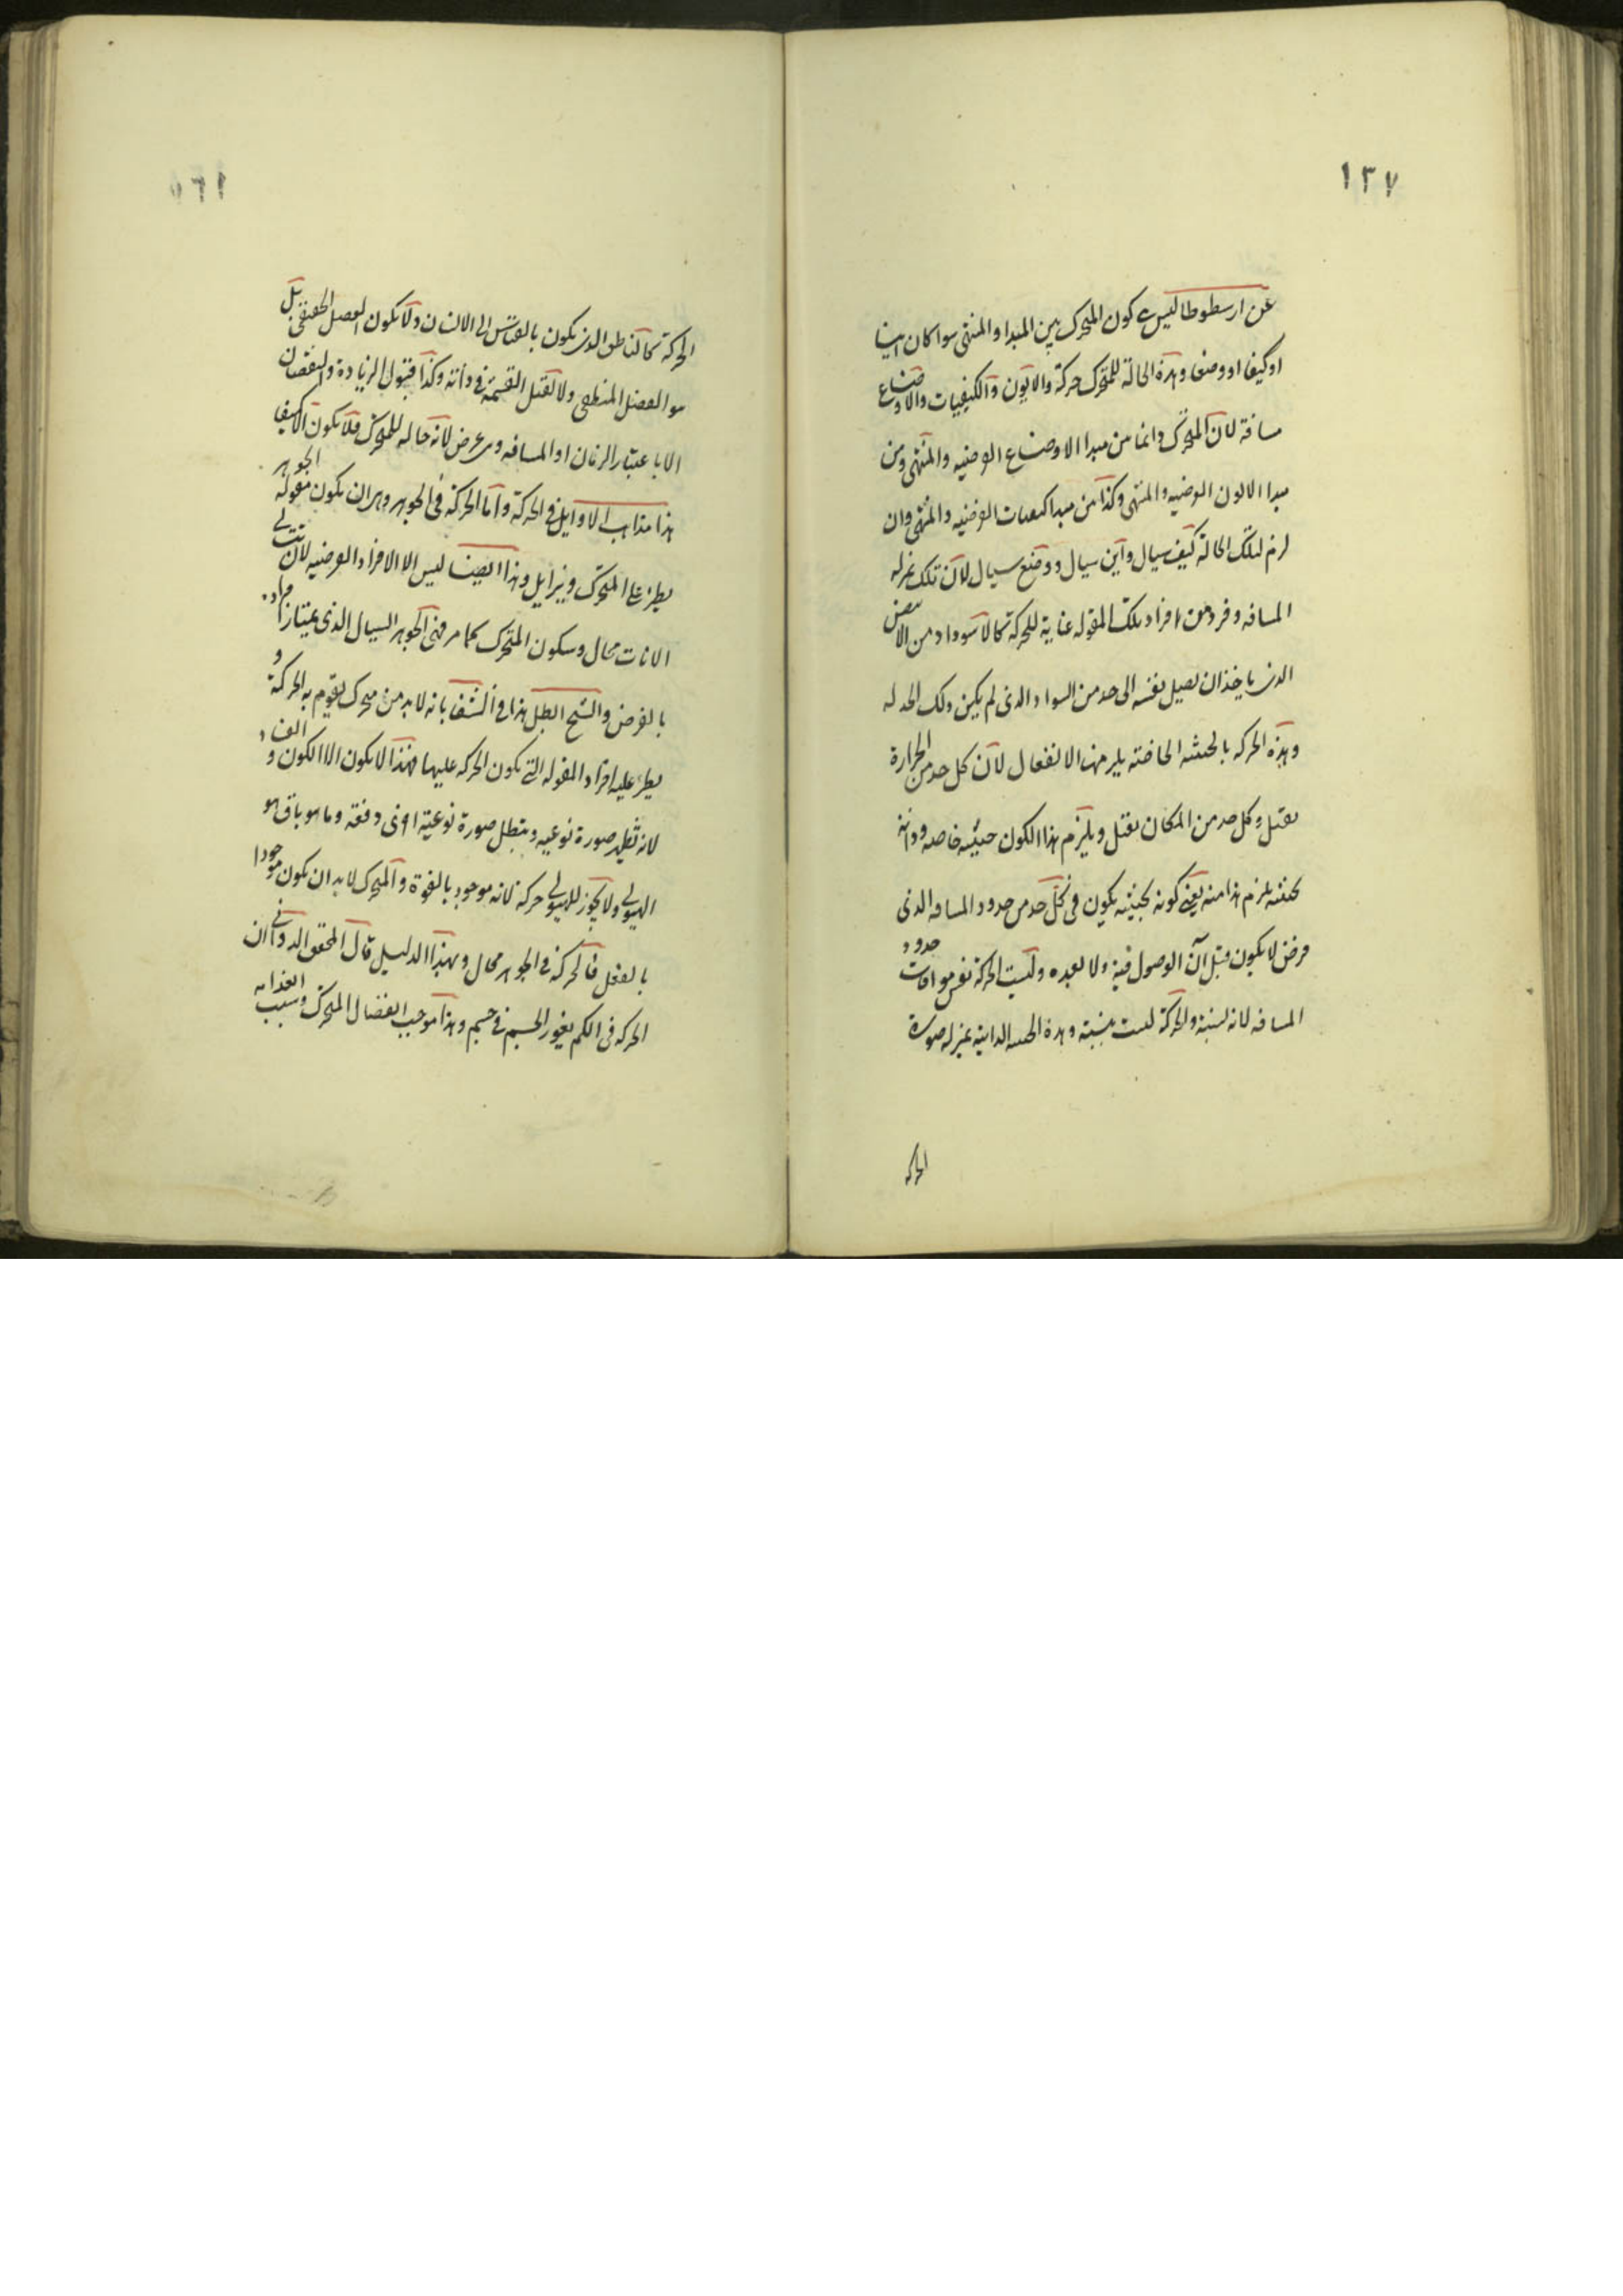 ١٣٧
عن ارسطوطاليس كون المتحرك بين المبدا والمنتهى سوا كان اينا
او كيفا او وضعا وهذه الحالة للمتحرك حركة والايون والكيفيات والاوضاع
مسافة لان المتحرك دائما من مبدا الاوضاع الفرضيه والمنتهى ومن
مبدا الايون الفرضيه والمنتهى وكذا من مبدا كيفيات الفرضيه والمنتهى وان
لزم لتلك الحالة كيف سيال واين سيال ووضع سيال لان تلك بمنزله
المسافه وفرد من افراد تلك المقوله غاية للحركة كالاسوداد من الابيض
الذى ياخذ ان يصل نفسه الى حد من السواد الذى لم يكن ذلك الحد له
وهذه الحركه بالحيثيه الخاصه يلزمها الانفعال لان كل حد من الحرارة
يقبل وكل حد من المكان يقبل ويلزم هذا الكون حيثيه خاصه وذاته
بحيثيه يلزم هذا منه يعنى كونه بحيثيه يكون فى كل حد من حدود المسافه الذى
فرض لا يكون قبل آن الوصول فيه ولا بعده وليست الحركة نفس موافات حدود
المسافه لانه نسبة والحركة ليست بنسبة وهذه الذاتية بمنزله صورة
الحركه
الحركة كالناطق الذى يكون بالقياس الى الانسان ولا يكون الفصل الحقيقى بل
هو الفصل المنطقى ولا تقبل القسمة فى ذاته وكذا قبول الزيادة والنقصان
الا باعتبار الزمان او المسافه وهى عرض لانه حاله للمتحرك فلا يكون الا كيفا
هذا مذاهب الاوايل فى الحركة واما الحركة فى الجوهر وهو ان يكون مقوله الجوهر
يطرء على المتحرك ويزايل وهذا ايضا ليس الا الافراد الفرضيه لان تتالى
الانات محال وسكون المتحرك كما مر فنى الجوهر السيال الذى يمتاز افراده
بالفرض والشيخ ابطل هذا فى الشفا بانه لا بد من متحرك يقوم به الحركة و
يطرء عليه افراد المقوله التى يكون الحركه عليها فهذا لا يكون الا الكون و الفساد
لانه صورة نوعيه ويبطل صورة نوعية اخرى دفعه وما هو باق هو
الهيولى ولا يجوز للهيولى حركة لانه موجود بالقوة والمتحرك لا بد ان يكون موجودا
بالفعل فالحركة فى الجوهر محال وبهذا الدليل قال المحقق الدوانى ان
الحركه فى الكم يغور الجسم فى جسم وهذا موجب انفصال المتحرك وسبب انعدامه